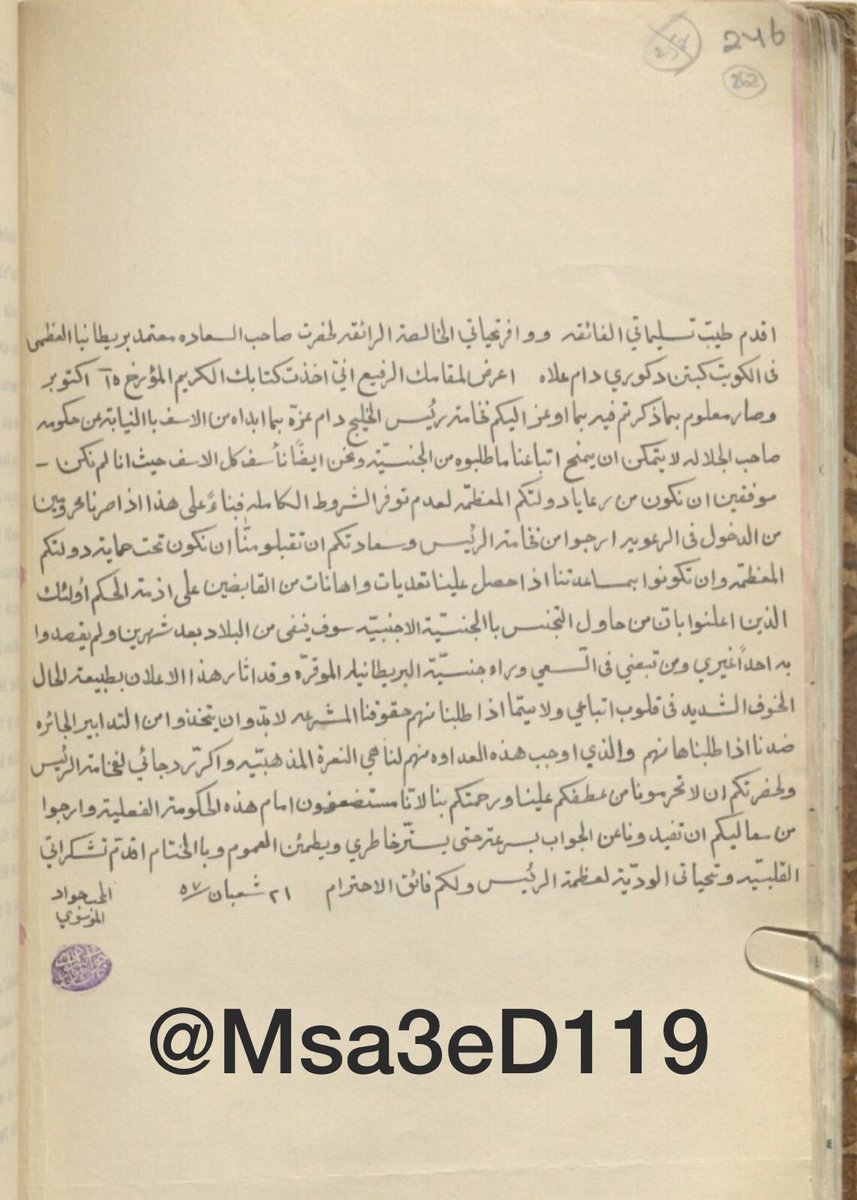 246
262
اقدم طيب تسليماتي الفائقه ووافر تحياتي الخالصة الرائقه لحضرت صاحب السعاده معتمد بريطانيا العظمى
في الكويت كبتن دكوري دام علاه اعرض لمقامك الرفيع انّي اخذت كتابك الكريم المؤرخ ١٥ اكتوبر
وصار معلوم بما ذكرتم فيه بما اوعز اليكم فخامة رئيس الخليج دام عزّه بما ابداه من الاسف باالنيابة عن حكومه
صاحب الجلاله لا يتمكن ان يمنح اتباعنا ما طلبوه من الجنسيّة ونحن ايضًا نأسف كل الاسف حيث انا لم نكن -
موفقين ان نكون من رعايا دولتكم المعظمّه لعدم توفر الشروط الكامله فبناءً على هذا اذا صرنا محرومين
من الدخول في الرعويه ارجوا من فخامة الرئيس وسعادتكم ان تقبلو منّا ان نكون تحت حماية دولتكم
المعظمّه وان تكونوا بمساعدتنا اذا حصل علينا تعديات واهانات من القابضين على ازمة الحكم أولئك
الذين اعلنوا بان من حاول التجنس باالجنسيّة الاجنبيّه سوف ينفى من البلاد بعد شهرين ولم يقصدوا
به احداً غيري ومن تبعني في السّعي وراه جنسيّة البريطانيا الموقرّه وقد اثار هذا الاعلان بطبيعة الحال
الخوف الشديد في قلوب اتباعي ولا سيّما اذا طلبنا منهم حقوقنا المشرعه لا بدّ وان يتخذوا من التدابير الجائره
ضدنا اذا طلبناها منهم والذي اوجب هذه العداوه منهم لنا هي النعرة المذهبيّه واكرّر رجائي لفخامة الرئيس
ولحضرتكم ان لا تحرمونا من عطفكم علينا ورحمتكم بنا لانا مستضعفون امام هذه الحكومة الفعلية وارجوا
من معاليكم ان تفيدونا عن الجواب بسرعة حتى يستّر خاطري ويطمئن العموم وباالختام اقدمّ تشكراتي
القلبيّه وتحياتي الوديّة لعظمة الرئيس ولكم فائق الاحترام ٢١ شعبان ٥٧
المحب جواد
الموسوي
@Msa3eD119